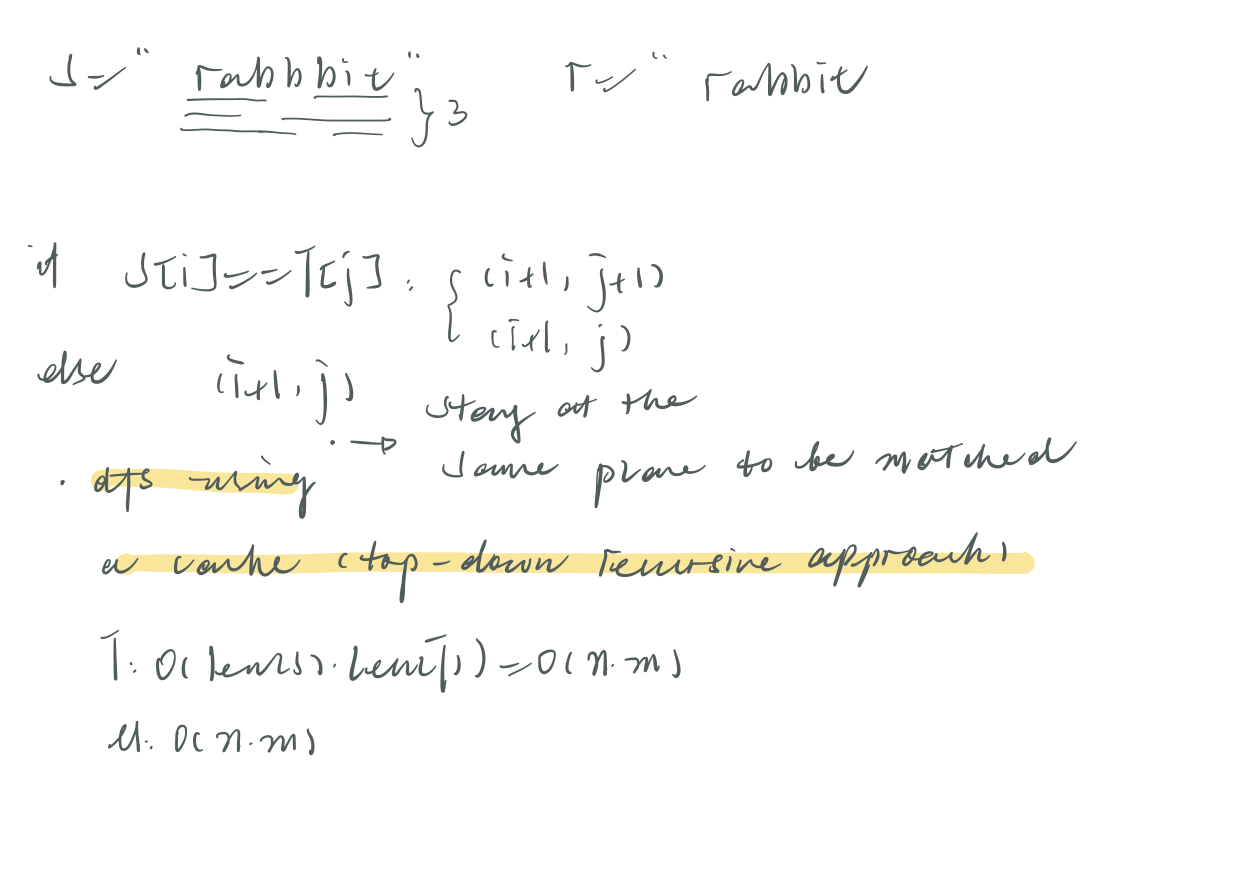 S = " rabbbit " T = " rabbit
} 3
if S[i] == T[j] : { (i+1, j+1)
(i+1, j)
else (i+1, j)
→ stay at the
same place to be matched
· dfs using
a cache (top-down recursive approach)
T: O( len(s) · len(T) ) = O( n·m )
M: O( n·m )